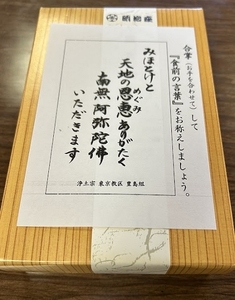 合掌（お手を合わせて）して
『食前の言葉』をお称えしましょう。
みほとけと
天地の恩恵ありがたく
めぐみ
南無阿弥陀佛
いただきます
浄土宗 東京教区 豊島組